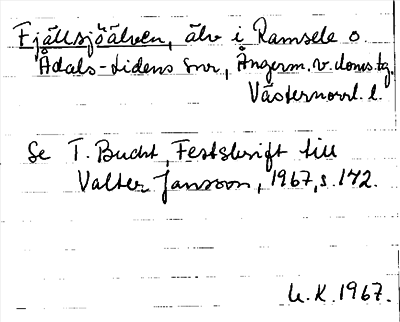 Fjällsjöälven, älv i Ramsele o.
Ådals-Lidens snr, Ångerm. v. doms. tg.
Västernorrl. l.
Se T. Bucht, Festskrift till
Valter Jansson, 1967, s. 172.
U.K. 1967.